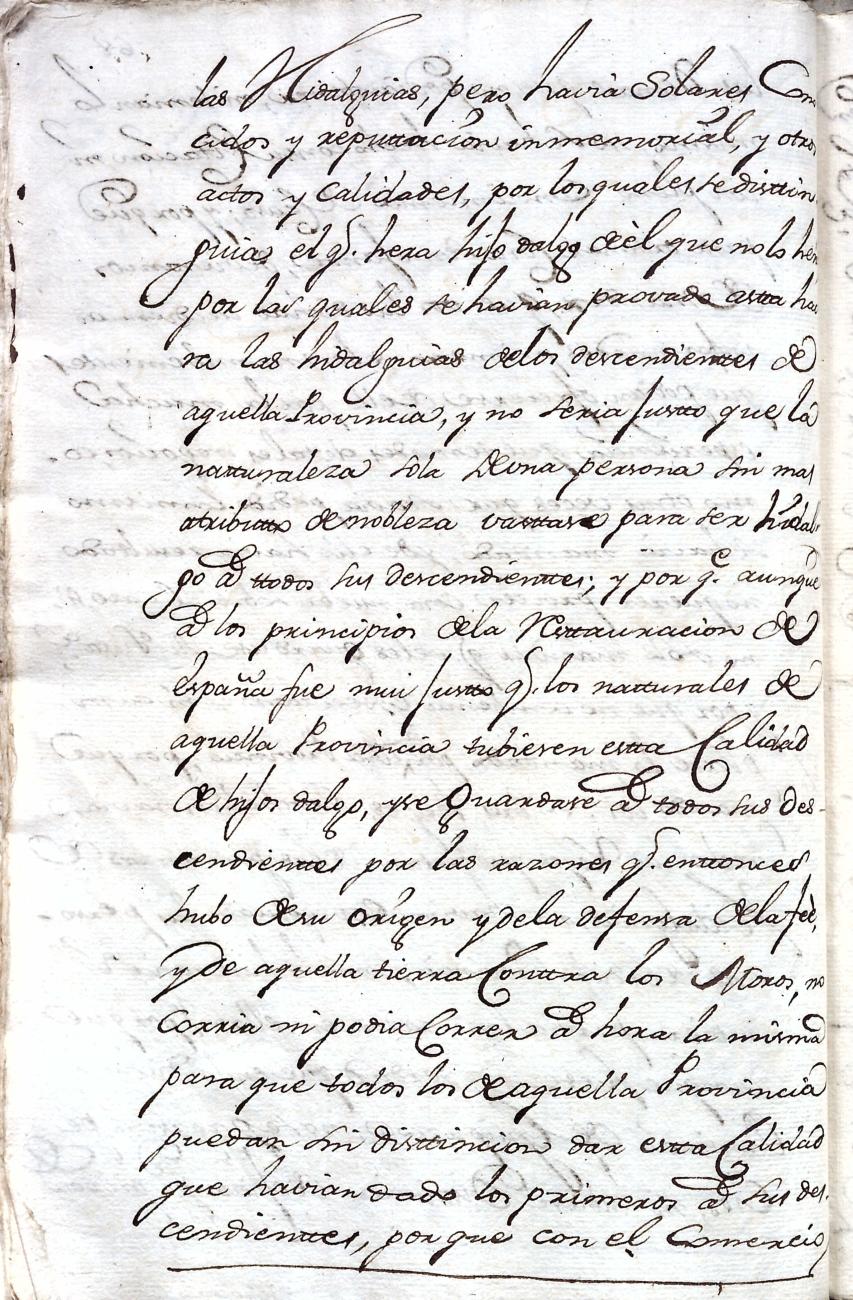 las Hidalguias, pero havia Solares Cono
cidos y reputtacion inmemorial, y otros
actos y Calidades, por los quales se disttin
guia el q.e hera hijo dalgo de èl que no lo hera
por las quales se havian provado astta ho
ra las hidalguias de los descendienttes de
aquella Provincia, y no seria Justto que la
natturaleza sola de una persona sin mas
atributto de nobleza vasttase para ser hidal-
go â ttodos sus descendienttes; y por q.e aunque
â los principios de la Resttauracion de
España fue mui Justto q.e los natturales de
aquella Provincia tubiesen estta Calidad
de hijos dalgo, y se Guardase â todos sus des-
cendienttes por las razones q.e enttonces
hubo de su origen y de la defensa de la feè,
y de aquella tierra Conttra los Moros, no
Corria ni podia Correr â hora la misma
para que todos los de aquella Provincia
puedan sin disttincion dar estta Calidad
que havian dado los primeros â sus des-
cendienttes, por que con el Comercio